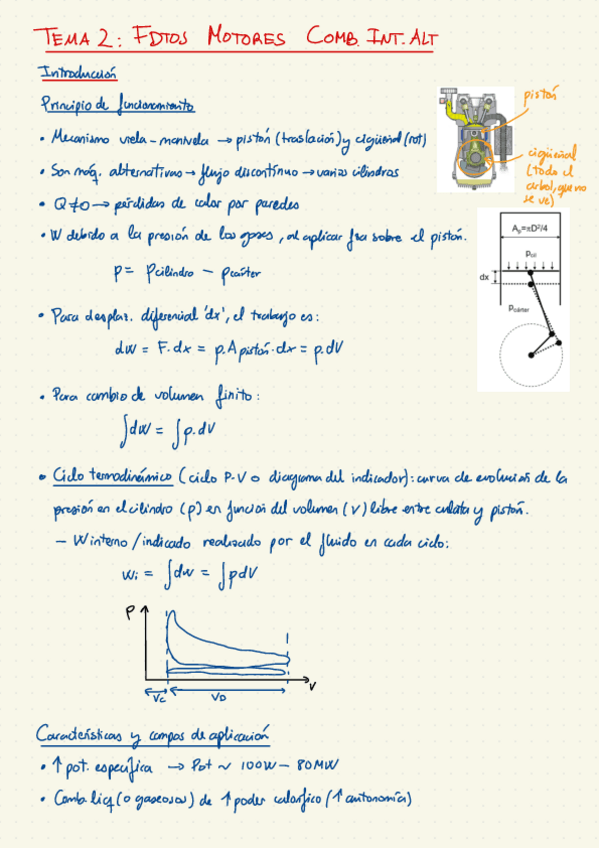 TEMA 2: FDTOS MOTORES COMB. INT. ALT
Introducción
Principio de funcionamiento
• Mecanismo viela-manivela → pistón (traslación) y cigüeñal (rot)
• Son máq. alternativas → flujo discontinuo → varios cilindros
• Q≠0 → pérdidas de calor por paredes
• W debido a la presión de los gases, al aplicar fza sobre el pistón.
p = Pcilindro − pcárter
• Para desplaz. diferencial 'dx', el trabajo es:
dW = F.dx = p.A pistón.dx = p.dV
• Para cambio de volumen finito:
∫dW = ∫p.dV
• Ciclo termodinámico (ciclo P-V o diagrama del indicador): curva de evolución de la
presión en el cilindro (p) en función del volumen (V) libre entre culata y pistón.
– W interno/indicado realizado por el fluido en cada ciclo:
Wi = ∫dW = ∫pdV
P
V
Vc
VD
Características y campos de aplicación
• ↑ pot. específica → Pot ~ 100W – 80MW
• Comb. líq (o gaseosos) de ↑ poder calorífico (↑ autonomía)
pistón
cigüeñal
(todo el
árbol, que no
se ve)
Ap=πD²/4
pcil
dx
pcárter